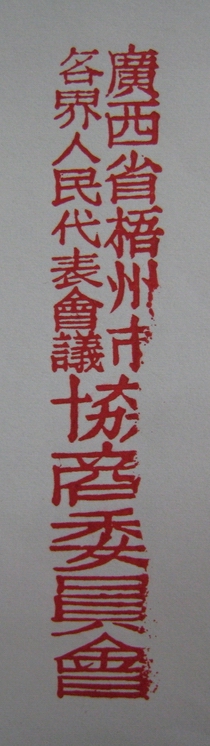 廣西省梧州市
各界人民代表會議
協商委員會